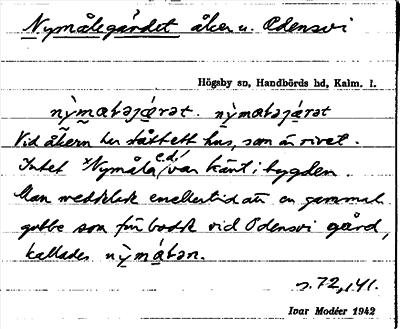 Nymålegärdet åker u. Odensvi
Högsby sn, Handbörds hd, Kalm. l.
nỳmɑtəjæ̀rət. nỳmɑtəjæ̀rət
Vid åkern har stått ett hus, som är rivet.
Intet *Nymåla e.d. var känt i bygden.
Man meddelade emellertid att en gammal
gubbe som för bodde vid Odensvi gård,
kallades nỳmɑ́tən.
s. 72, 141.
Ivar Modéer 1942